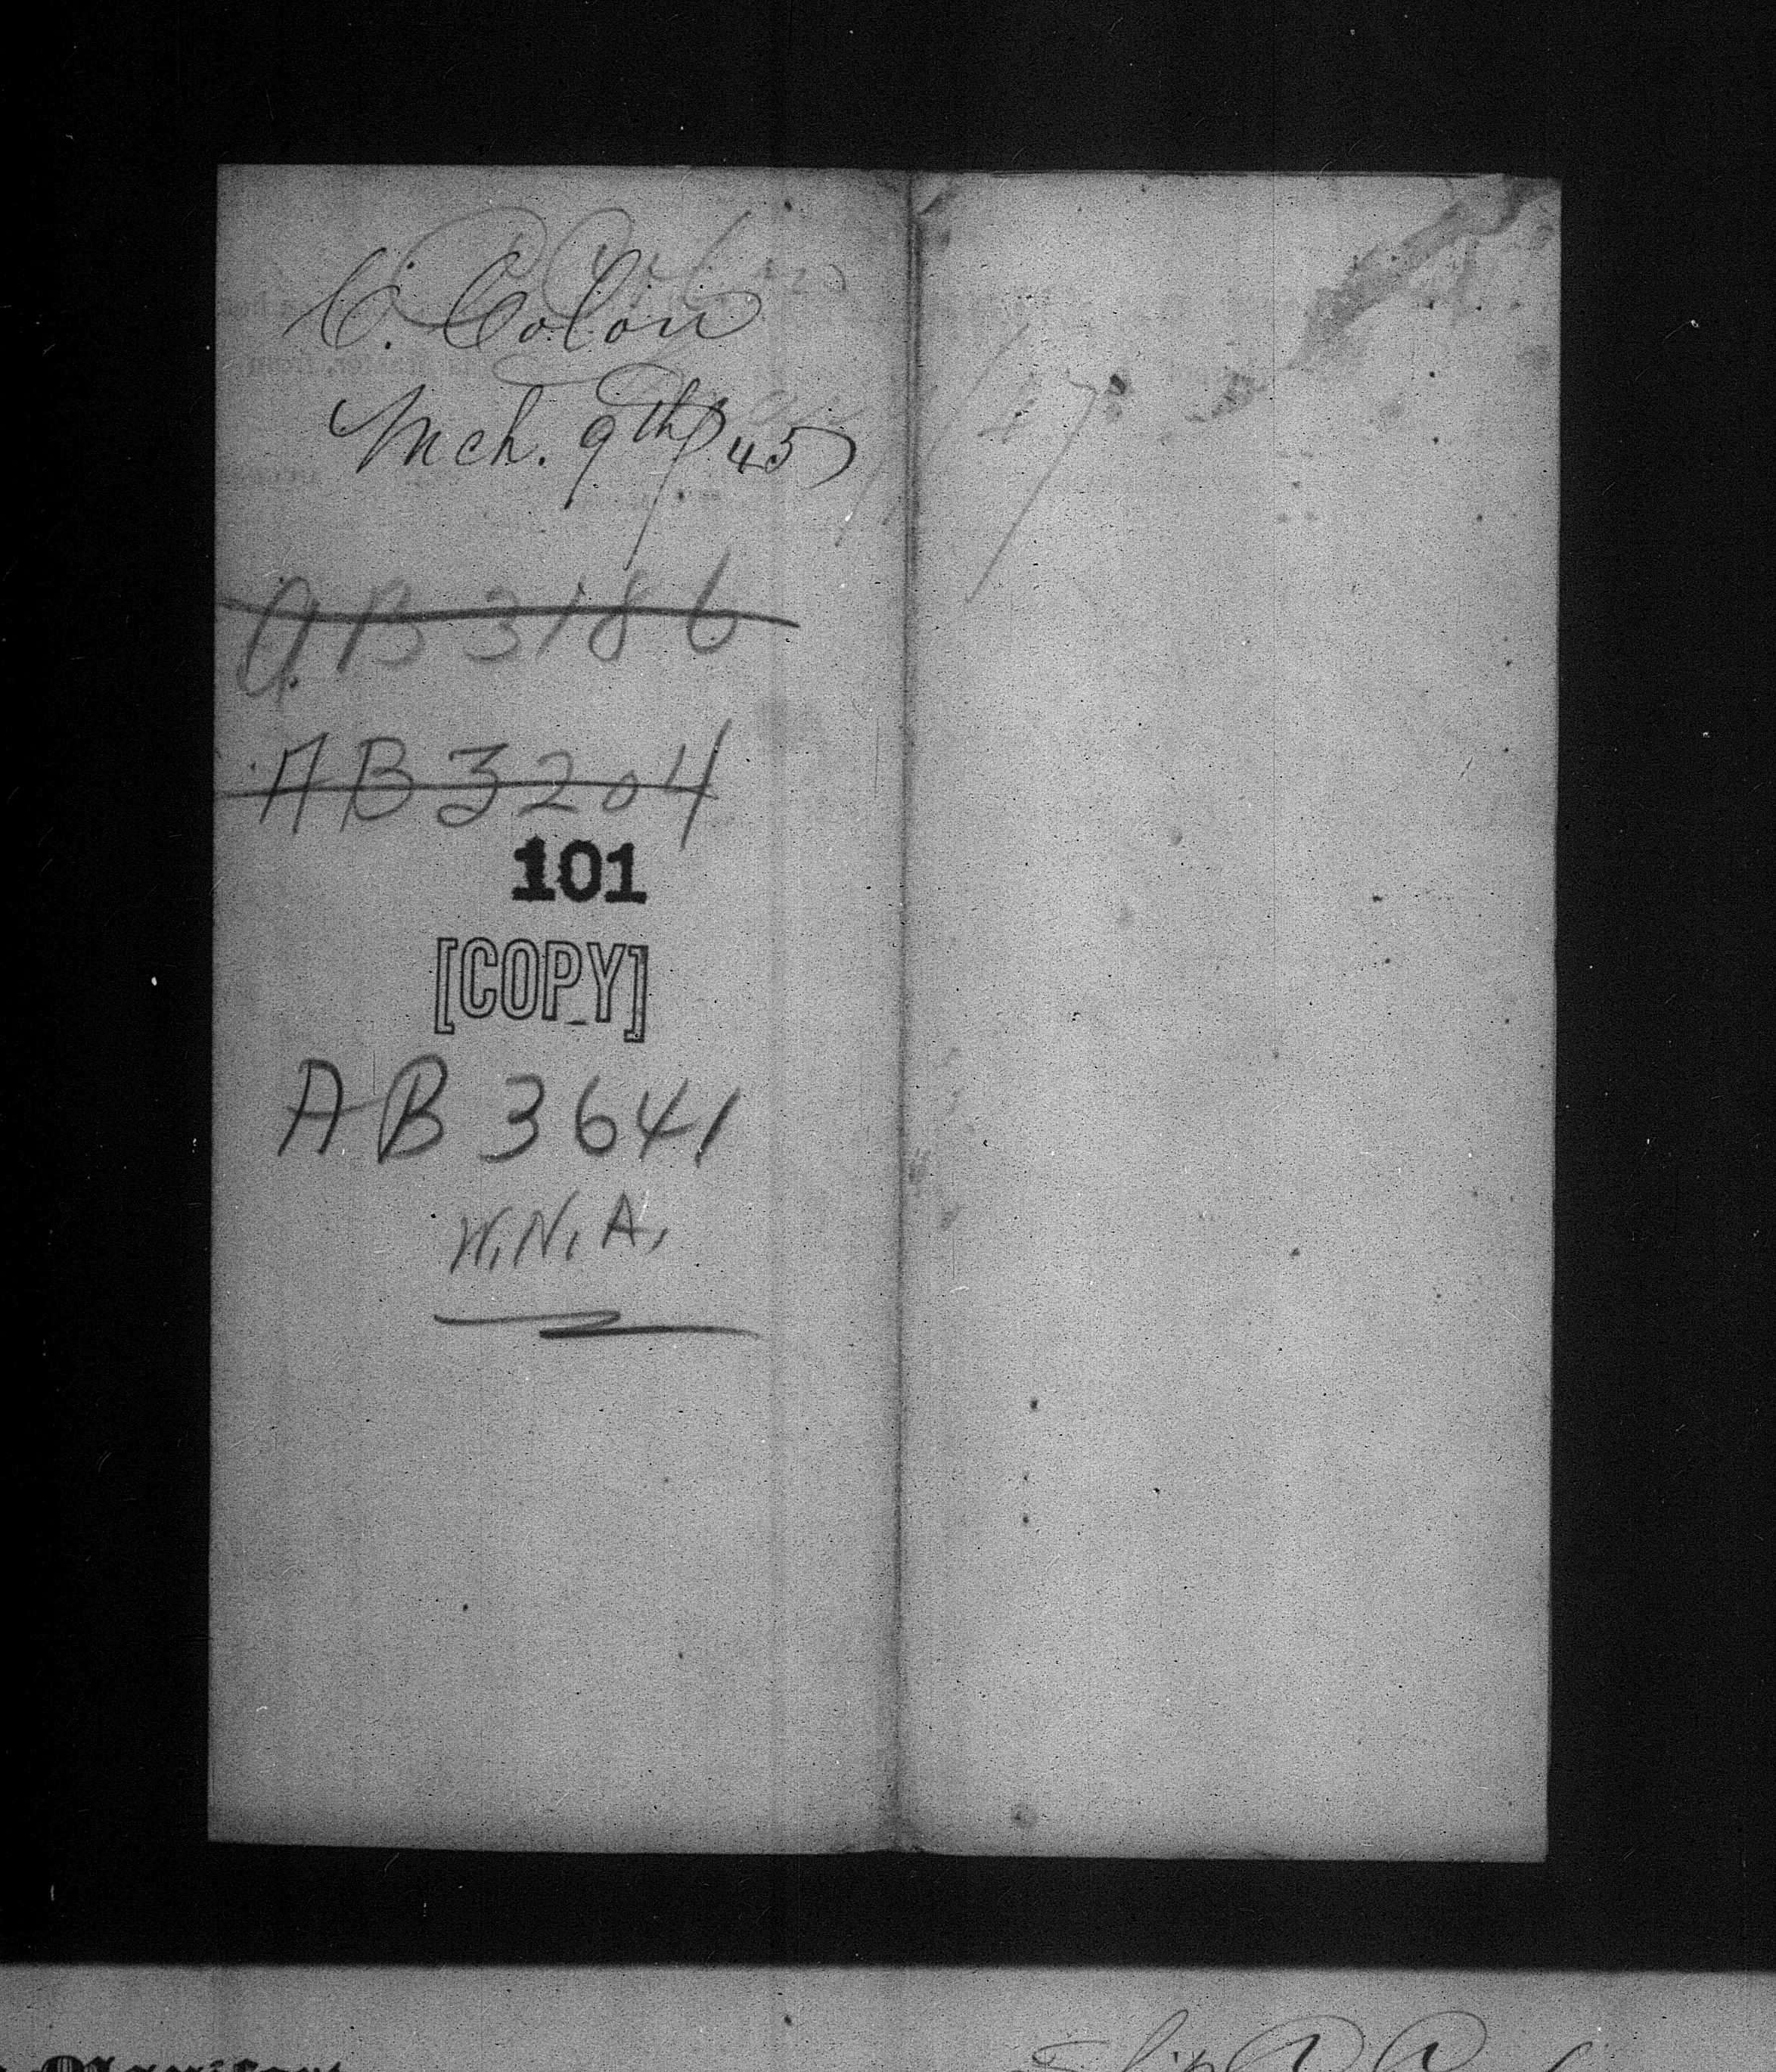 C. Colon
Mch. 9th 45
AB 3186
AB 3204
101
[COPY]
AB 3641
W.N.A.
Manifest
Ship